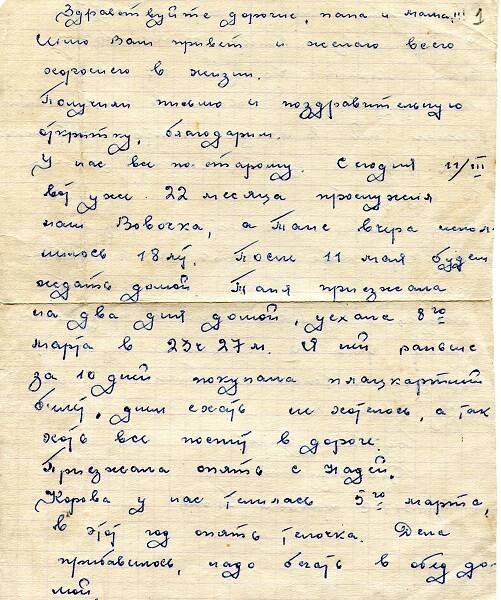 Здравствуйте дорогие, папа и мама!!! 1
Шлю Вам привет и желаю всего
хорошего в жизни.
Получили письмо и поздравительную
открытку, благодарим.
У нас все по-старому. Сегодня 11/III
вот уже 22 месяца прослужил
наш Вовочка, а Тане вчера испол-
нилось 18 лет. После 11 мая будем
ждать домой. Таня приезжала
на два дня домой, уехала 8го
марта в 23ч 27м. Я ей раньше
за 10 дней покупала плацкартный
билет, днем ехать не хотелось, а так
хоть все поспит в дороге.
Приезжала опять с Надей.
Корова у нас телилась 5го марта,
в этот год опять телочка. Дела
прибавилось, надо бегать в обед до-
мой.